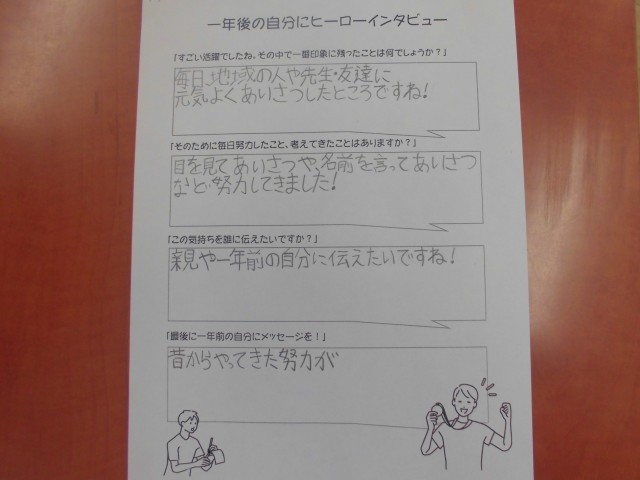 一年後の自分にヒーローインタビュー
「すごい活躍でしたね、その中で一番印象に残ったことは何でしょうか？」
毎日、地域の人や先生・友達に
元気よくあいさつしたところですね！
「そのために毎日努力したこと、考えてきたことはありますか？」
目を見てあいさつや、名前を言ってあいさつ
など努力してきました！
「この気持ちを誰に伝えたいですか？」
親や一年前の自分に伝えたいですね！
「最後に一年前の自分にメッセージを！」
昔からやってきた努力が